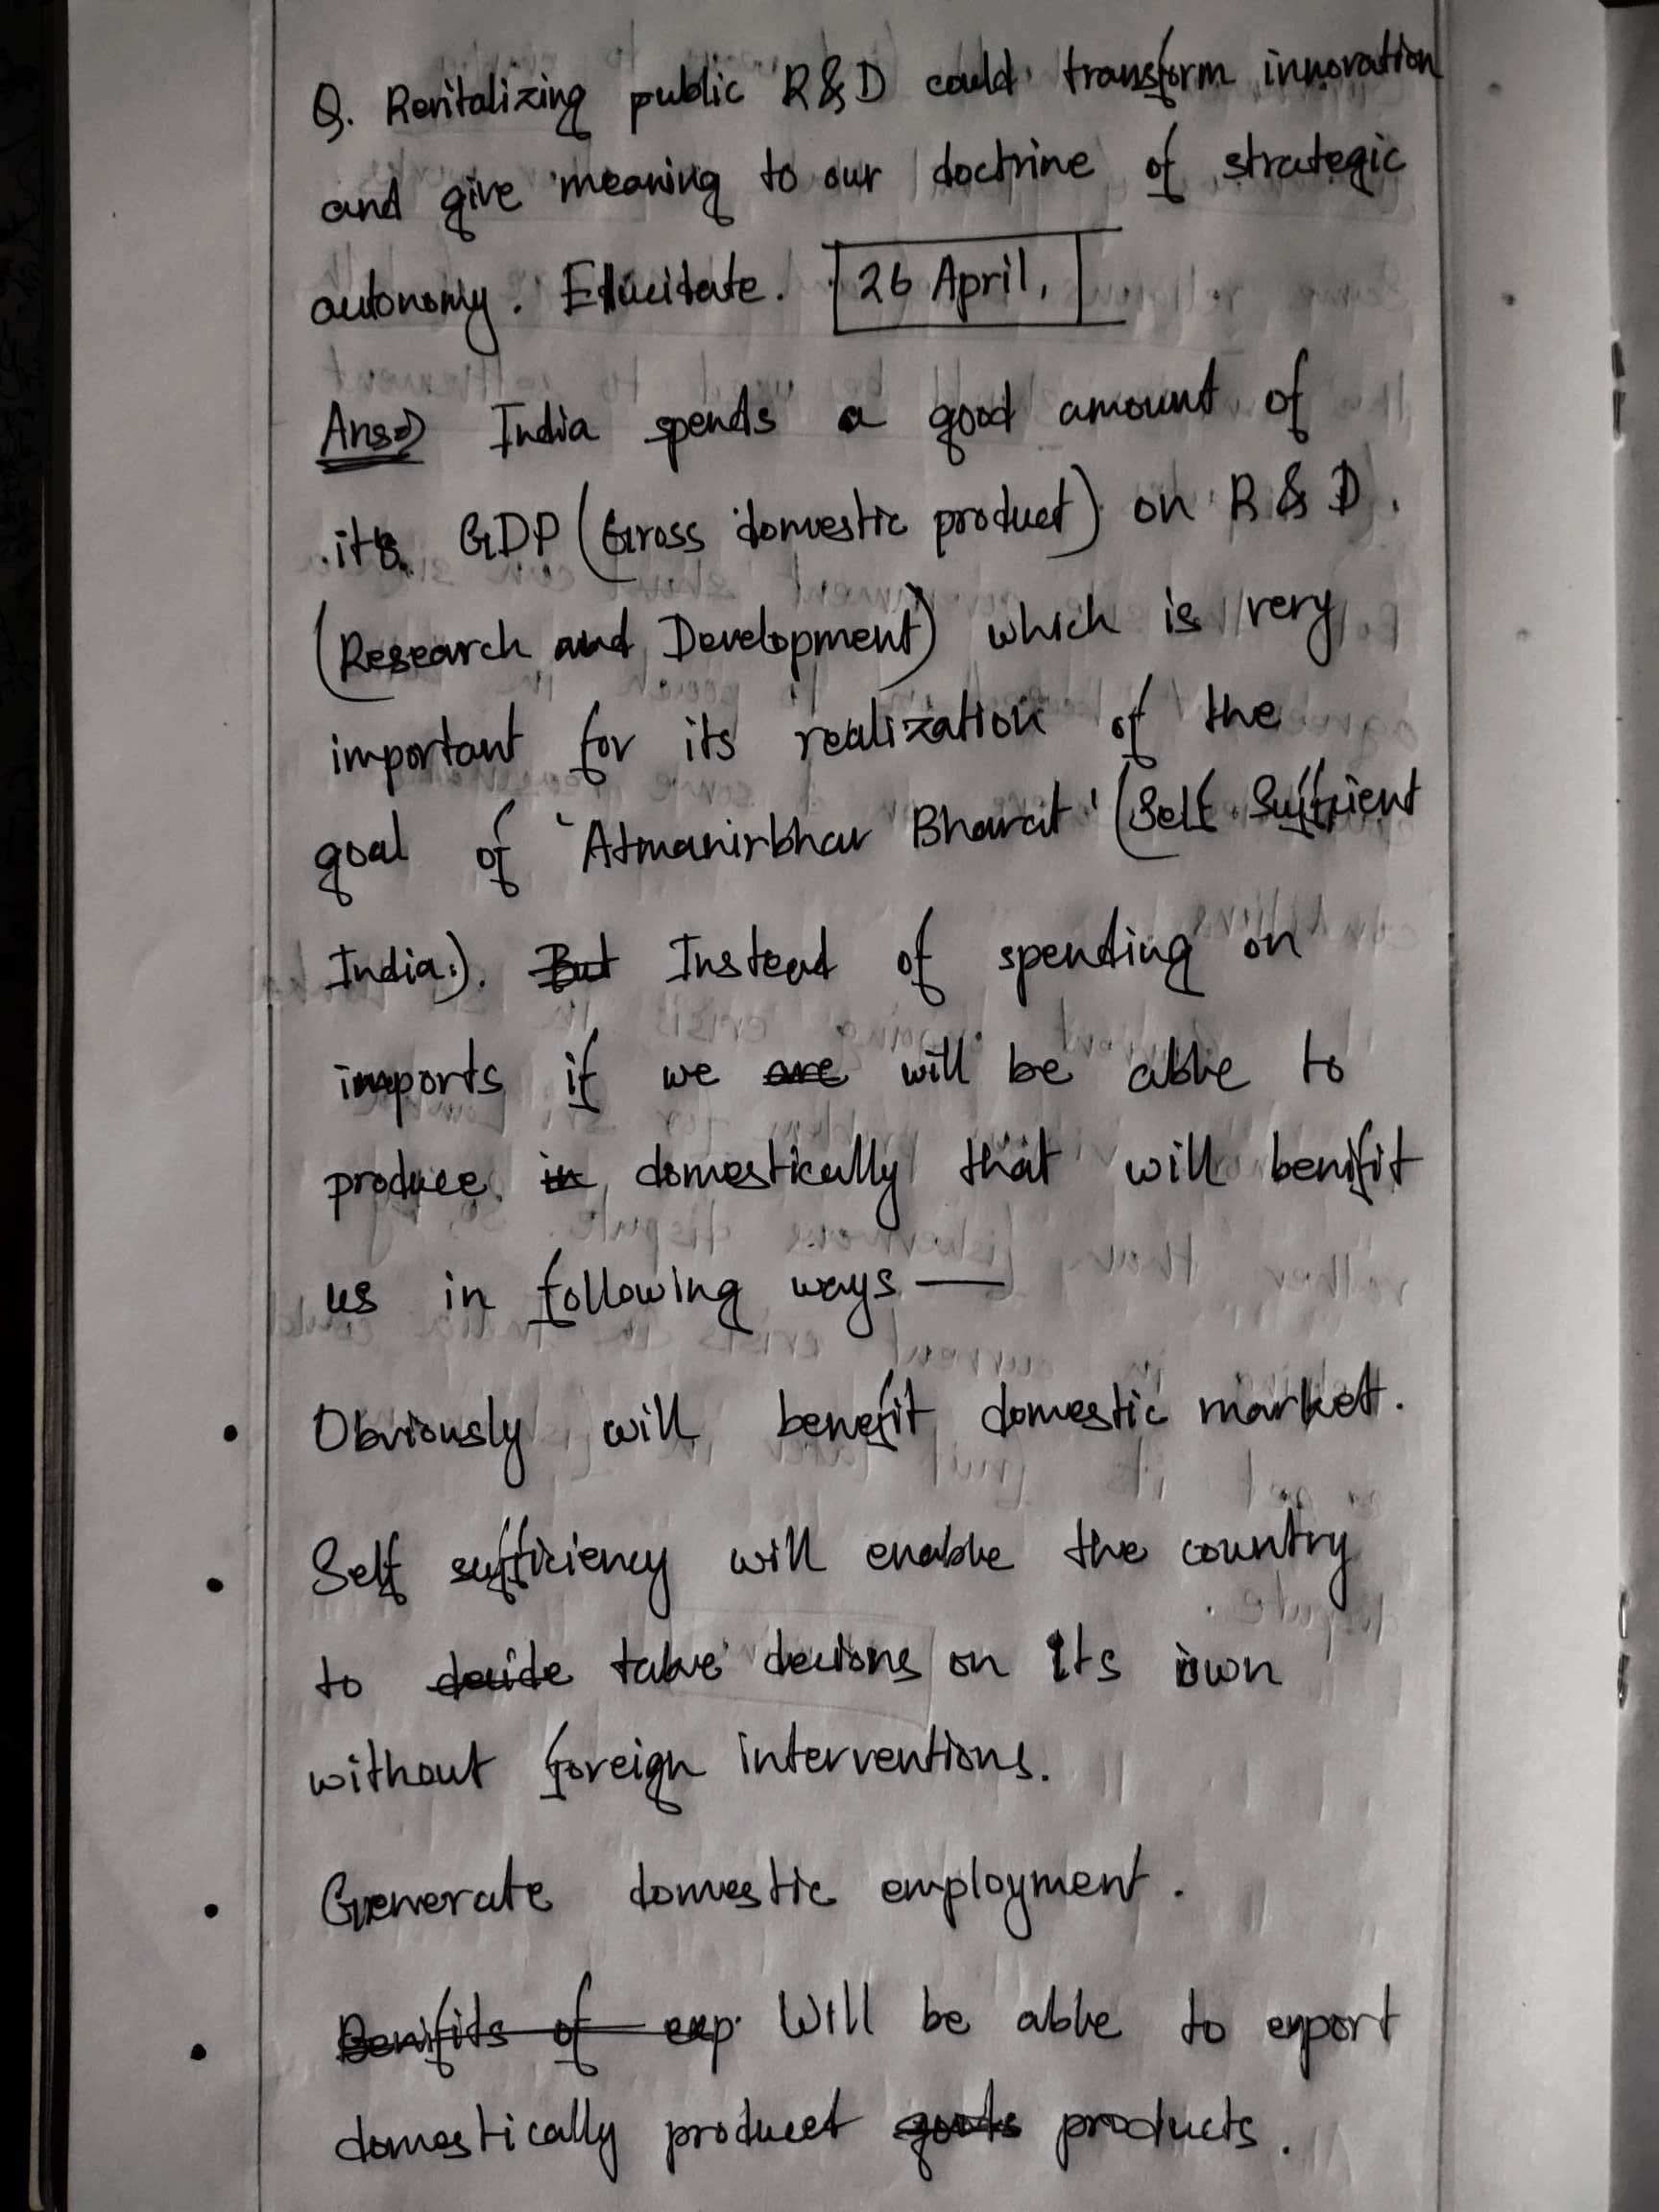 Q. Revitalizing public R&D could transform innovation
and give meaning to our doctrine of strategic
autonomy. Elucidate. 26 April,
Ans⇒) India spends a good amount of
its GDP (Gross domestic product) on R & D.
(Research and Development) which is very
important for its realization of the
goal of 'Atmanirbhar Bharat' (Self Sufficient
India.). But Instead of spending on
imports if we are will be able to
produce in domestically that will benifit
us in following ways —
• Obviously will benefit domestic market.
• Self sufficiency will enable the country
to decide take decions on its own
without foreign interventions.
• Generate domestic employment.
• Benifits of exp. Will be able to export
domestically product goods products.